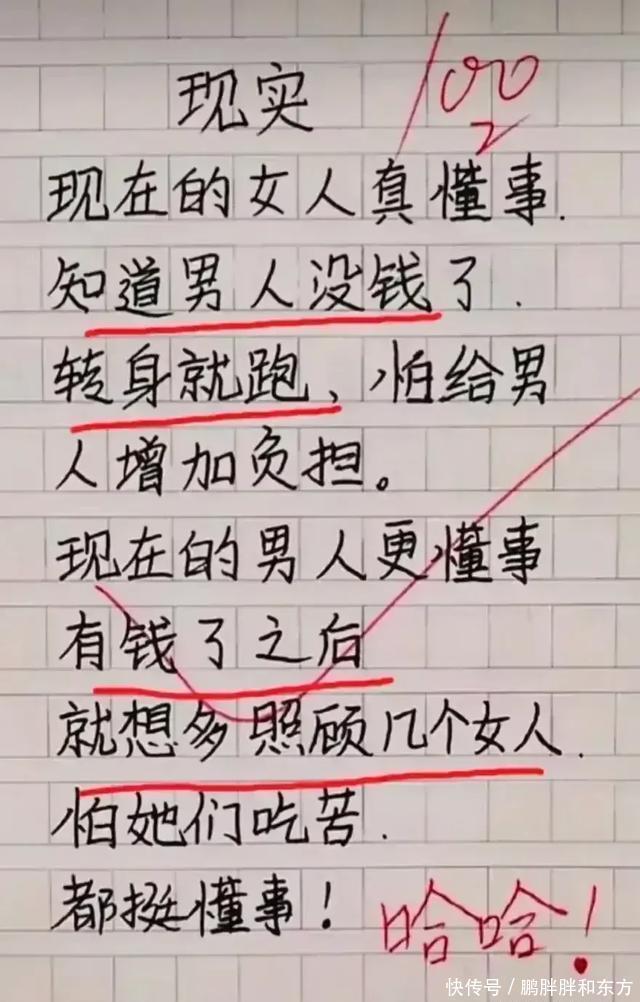 现实
100
现在的女人真懂事.
知道男人没钱了.
转身就跑、怕给男
人增加负担。
现在的男人更懂事
有钱了之后
就想多照顾几个女人.
怕她们吃苦.
都挺懂事!
哈哈!
快传号/鹏胖胖和东方